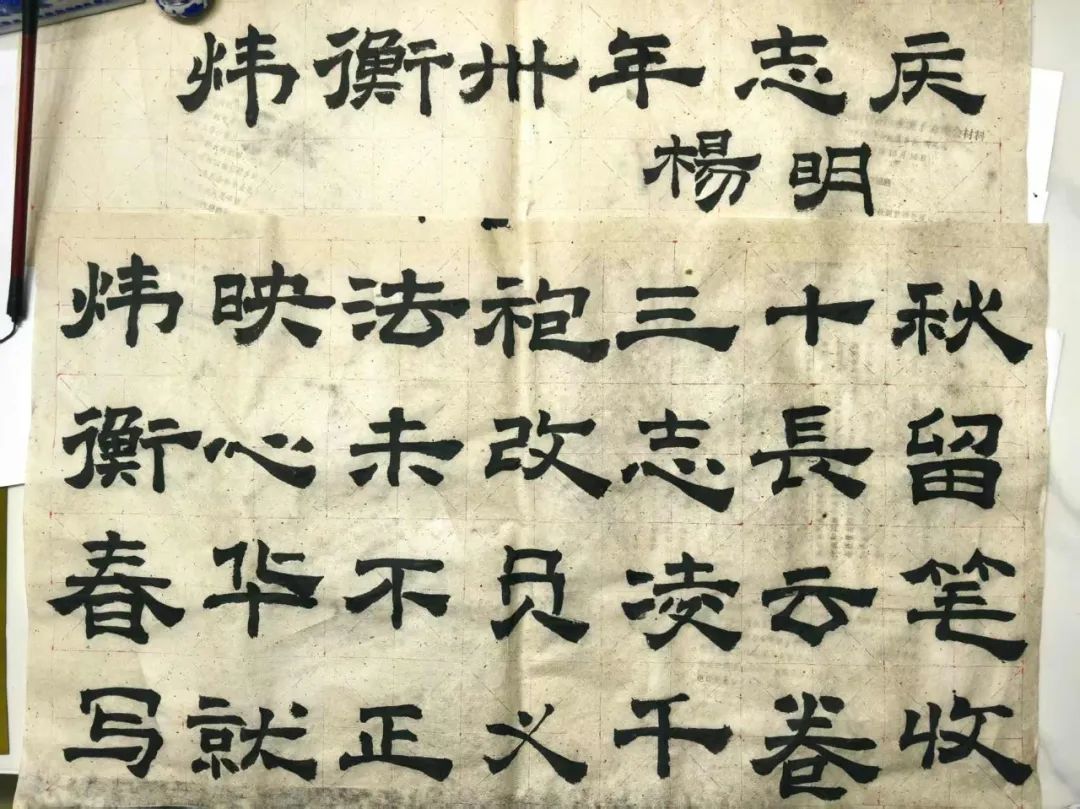 炜衡卅年志庆
楊明
炜映法袍三十秋
衡心未改志長留
春华不负凌云笔
写就正义千卷收